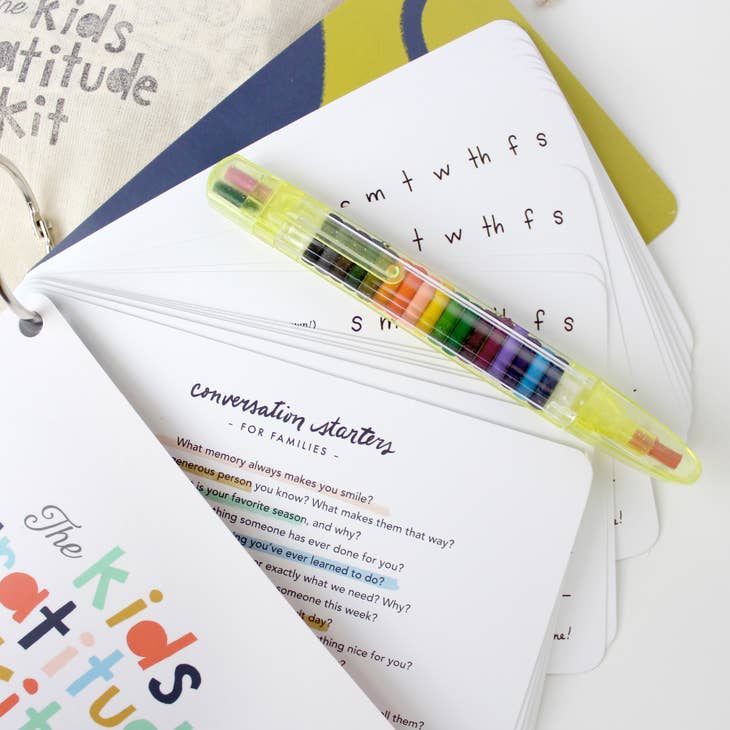 the
kids
atitude
kit
s m t w th f s
t w th f s
s m th f s
conversation starters
- FOR FAMILIES -
What memory always makes you smile?
generous person you know? What makes them that way?
is your favorite season, and why?
thing someone has ever done for you?
ing you've ever learned to do?
or exactly what we need? Why?
someone this week?
ult day?
thing nice for you?
?
ell them?
ne!
!
The
kids
ratitude
kit